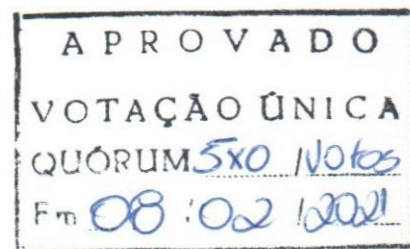 A P R O V A D O
VOTAÇÃO ÚNICA
QUÓRUM 5x0 / Votos
Em 08 : 02 / 2021